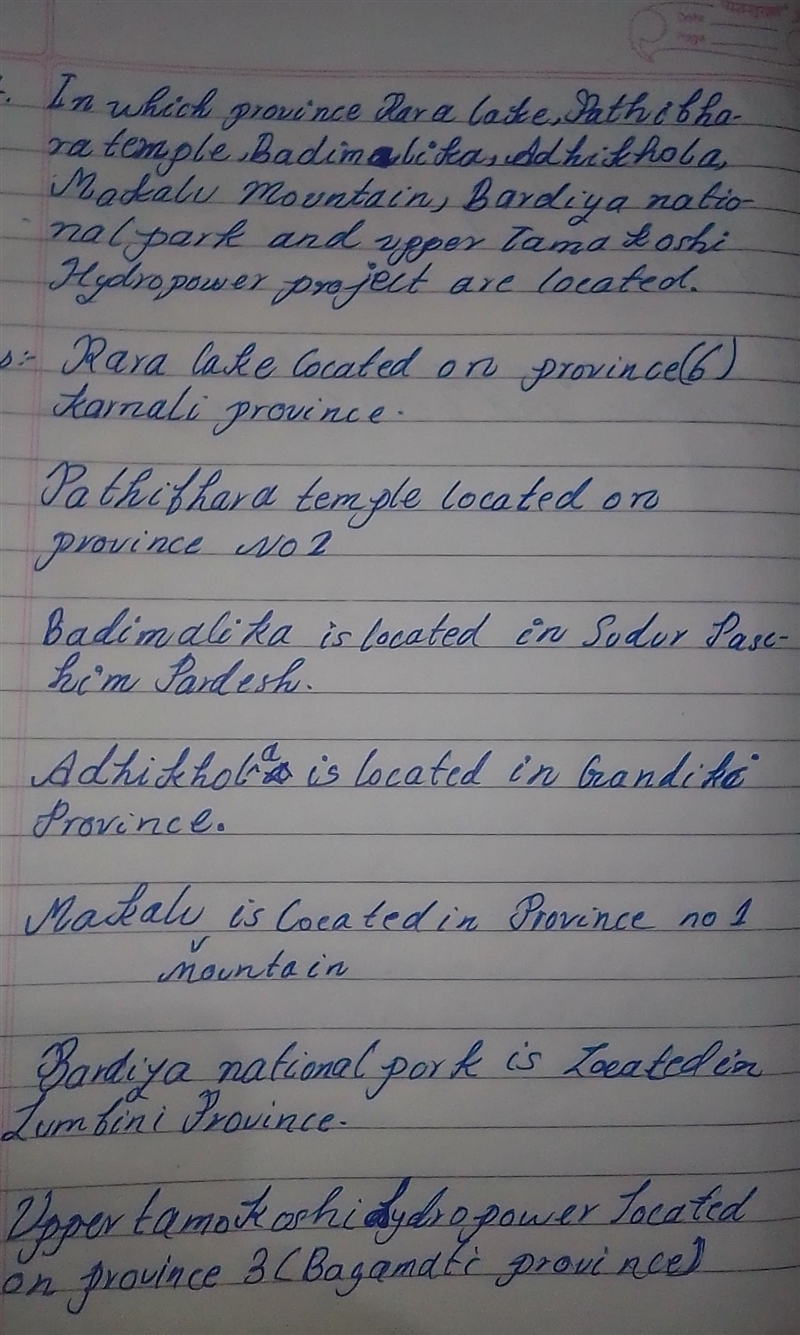 Date
Page
. In which province Rara lake, Pathibha-
ra temple, Badimalika, Adhikhola,
Makalu Mountain, Bardiya natio-
nal park and upper Tamakoshi
Hydropower project are located.
s:- Rara lake located on province(6)
karnali province.
Pathibhara temple located on
province No 1
Badimalika is located in Sudur Pasc-
him Pardesh.
Adhikhola is located in Gandiki
Province.
Makalu is located in Province no 1
mountain
Bardiya national park is Located in
Lumbini Province.
Upper tamokoshi Hydropower located
on province 3 (Bagamati province)